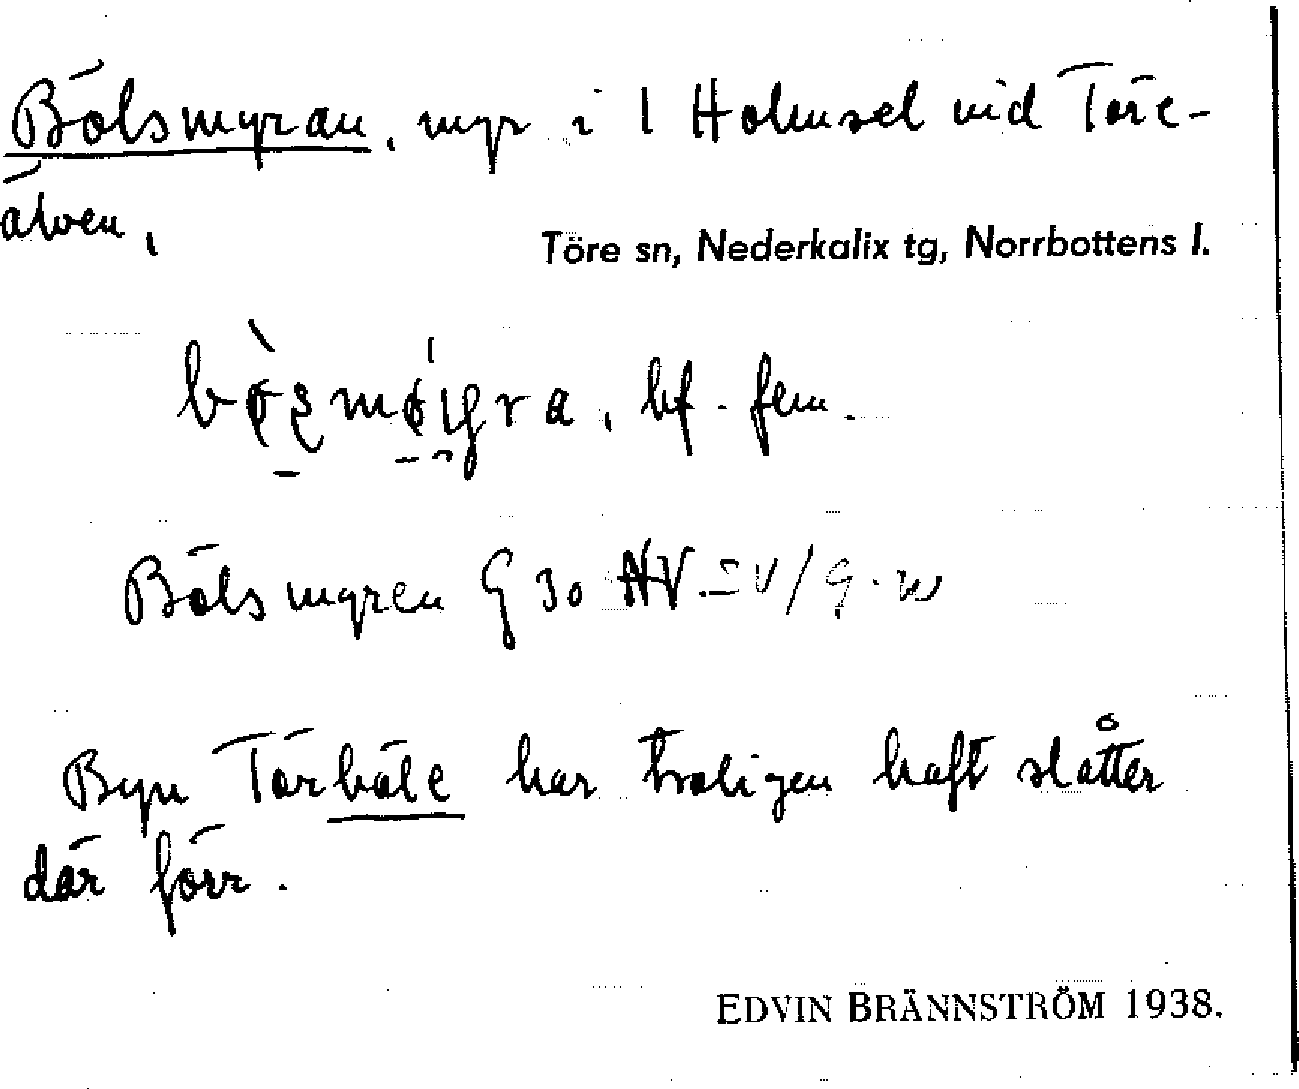 Bölsmyran, myr i 1 Holmsel vid Töre-
älven,
Töre sn, Nederkalix tg, Norrbottens l.
bf. fem.
Bölsmyren G 30 NV
Byn Törböle har troligen haft slåtter
där förr.
EDVIN BRÄNNSTRÖM 1938.